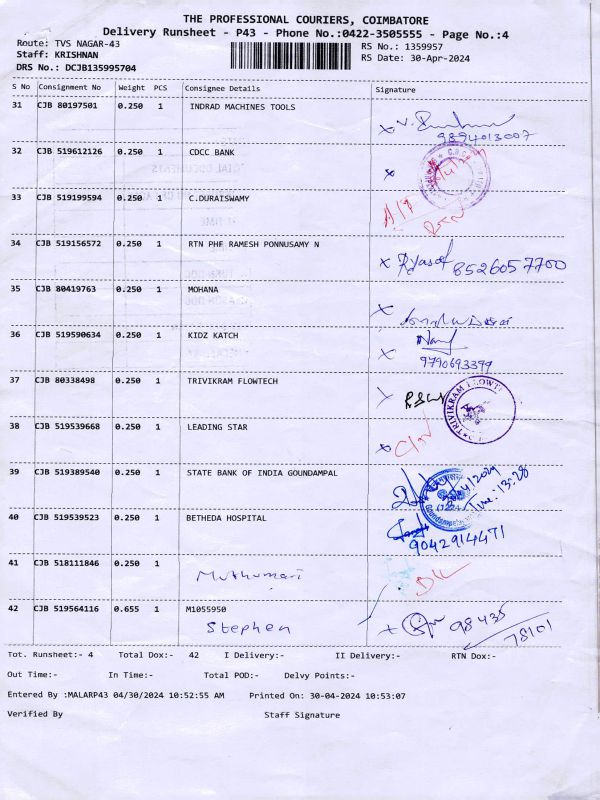 THE PROFESSIONAL COURIERS, COIMBATORE
Delivery Runsheet - P43 - Phone No.:0422-3505555 - Page No.:4
Route: TVS NAGAR-43 RS No.: 1359957
Staff: KRISHNAN RS Date: 30-Apr-2024
DRS No.: DCJB135995704
S No Consignment No Weight PCS Consignee Details Signature
31 CJB 80197501 0.250 1 INDRAD MACHINES TOOLS
9894013007
32 CJB 519612126 0.250 1 CDCC BANK
33 CJB 519199594 0.250 1 C.DURAISWAMY
RTN
34 CJB 519156572 0.250 1 RTN PHF RAMESH PONNUSAMY N
8526057700
35 CJB 80419763 0.250 1 MOHANA
36 CJB 519590634 0.250 1 KIDZ KATCH
9790693399
37 CJB 80338498 0.250 1 TRIVIKRAM FLOWTECH
38 CJB 519539668 0.250 1 LEADING STAR
39 CJB 519389540 0.250 1 STATE BANK OF INDIA GOUNDAMPAL
Time: 13:28
40 CJB 519539523 0.250 1 BETHEDA HOSPITAL
9042914471
41 CJB 518111846 0.250 1
Muthumari
42 CJB 519564116 0.655 1 M1055950
Stephen 98435
78101
Tot. Runsheet:- 4 Total Dox:- 42 I Delivery:- II Delivery:- RTN Dox:-
Out Time:- In Time:- Total POD:- Delvy Points:-
Entered By :MALARP43 04/30/2024 10:52:55 AM Printed On: 30-04-2024 10:53:07
Verified By Staff Signature